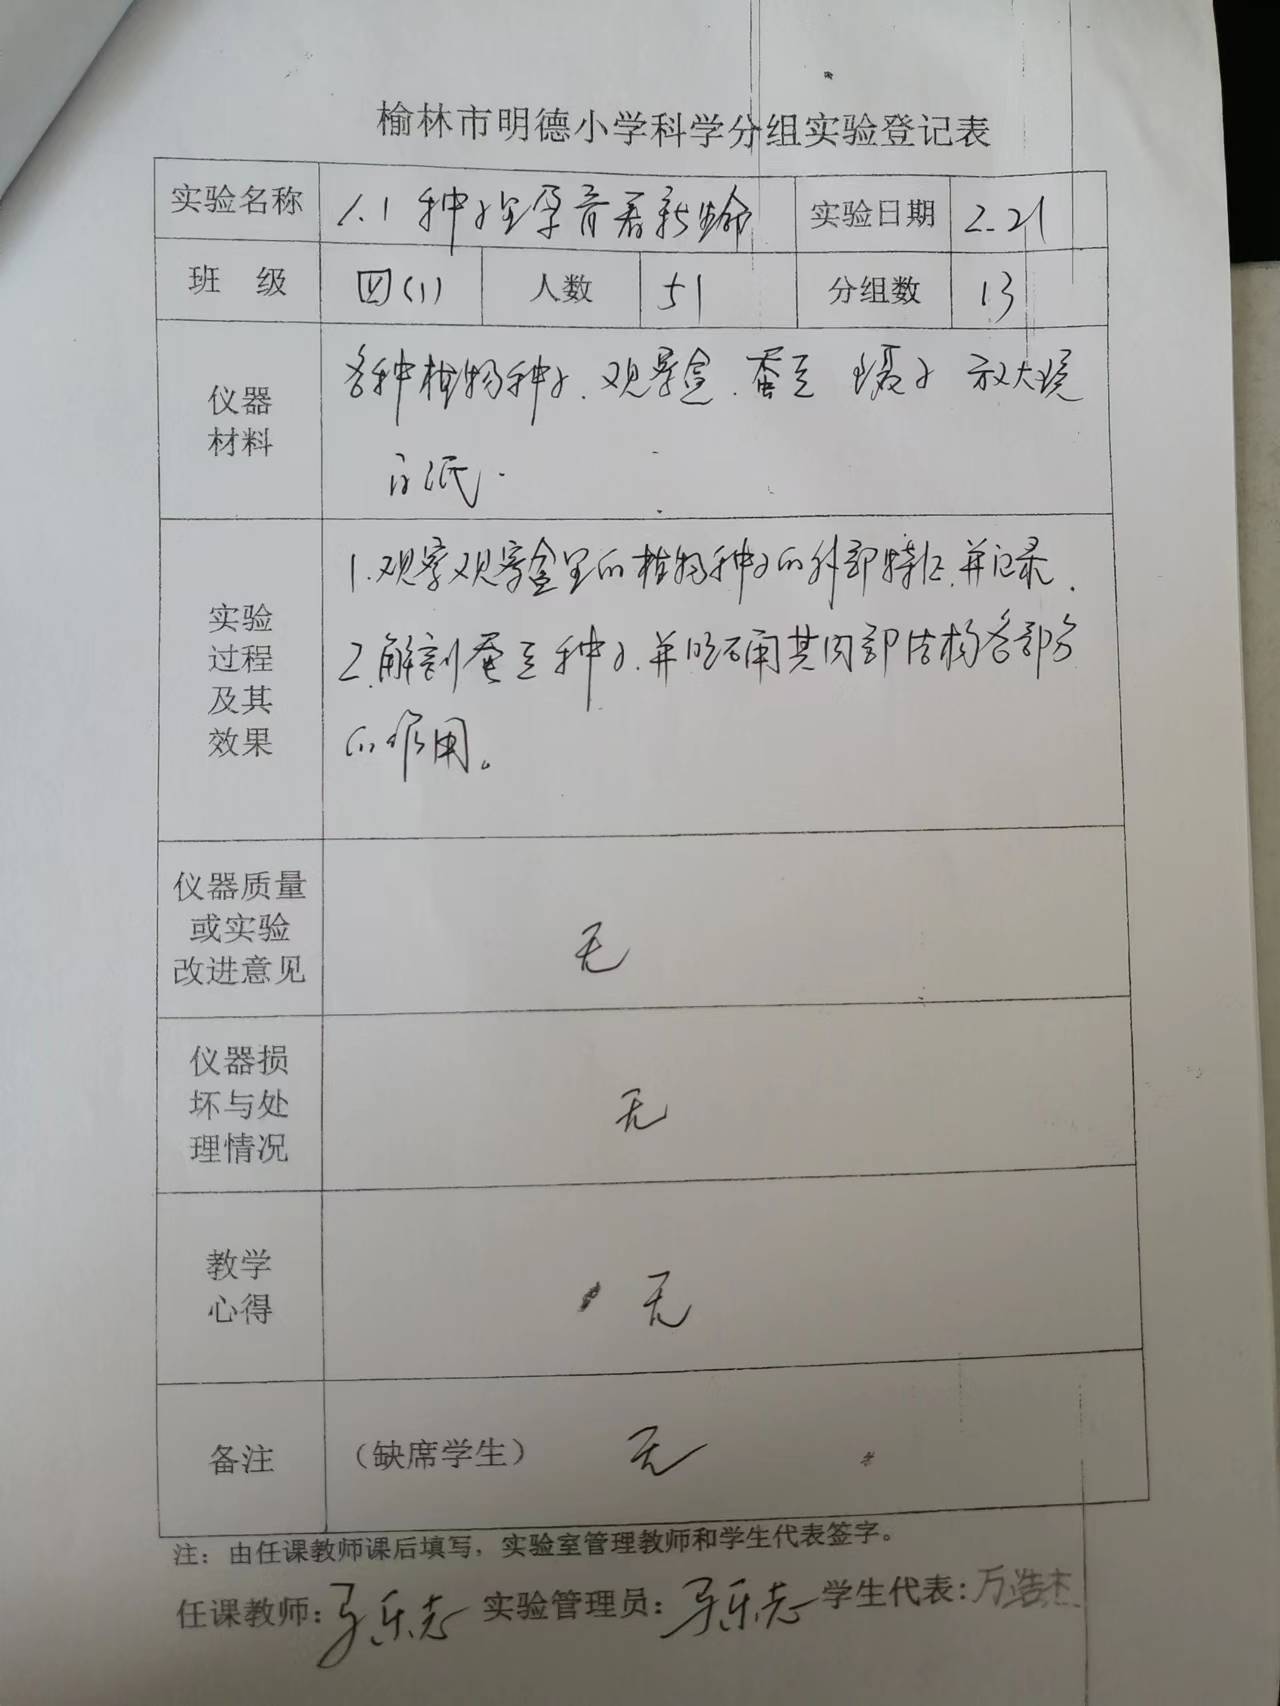 榆林市明德小学科学分组实验登记表
实验名称 1.1 种子里孕育着新生命 实验日期 2.21
班 级 四(1) 人数 51 分组数 13
仪器
材料
各种植物种子.观察盒.蚕豆 镊子 放大镜
白纸.
实验
过程
及其
效果
1.观察观察盒里的植物种子的外部特征.并记录.
2.解剖蚕豆种子.并明确其内部结构各部分
的作用。
仪器质量
或实验
改进意见
无
仪器损
坏与处
理情况
无
教学
心得
无
备注 （缺席学生） 无
注：由任课教师课后填写，实验室管理教师和学生代表签字。
任课教师: 乐志 实验管理员: 乐志 学生代表: 万浩杰